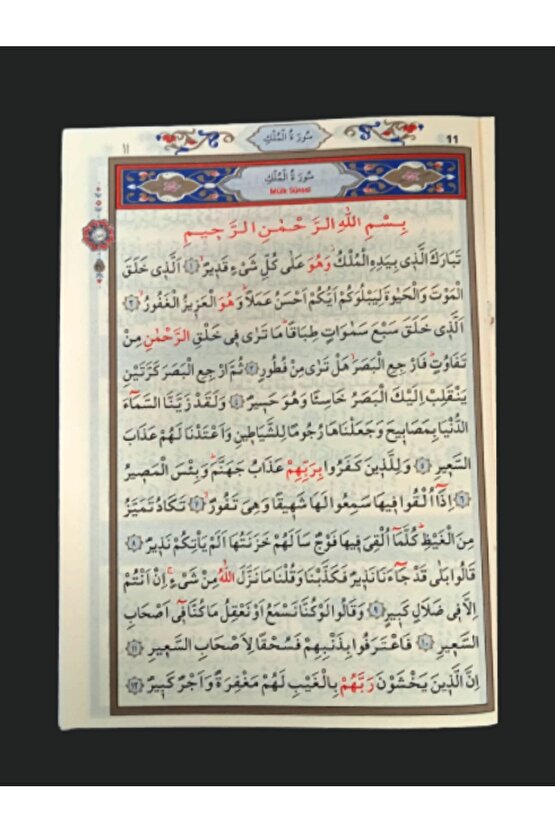 ١١ سُورَةُ الْمُلْكِ 11
سُورَةُ الْمُلْكِ
Mülk Sûresi
بِسْمِ اللهِ الرَّحْمٰنِ الرَّحِيمِ
تَبَارَكَ الَّذ۪ي بِيَدِهِ الْمُلْكُۘ وَهُوَ عَلٰى كُلِّ شَيْءٍ قَد۪يرٌۙ ﴿١﴾ اَلَّذ۪ي خَلَقَ
الْمَوْتَ وَالْحَيٰوةَ لِيَبْلُوَكُمْ اَيُّكُمْ اَحْسَنُ عَمَلًاۜ وَهُوَ الْعَز۪يزُ الْغَفُورُۙ ﴿٢﴾
اَلَّذ۪ي خَلَقَ سَبْعَ سَمٰوَاتٍ طِبَاقًاۜ مَا تَرٰى ف۪ي خَلْقِ الرَّحْمٰنِ مِنْ
تَفَاوُتٍۜ فَارْجِعِ الْبَصَرَۙ هَلْ تَرٰى مِنْ فُطُورٍ ﴿٣﴾ ثُمَّ ارْجِعِ الْبَصَرَ كَرَّتَيْنِ
يَنْقَلِبْ اِلَيْكَ الْبَصَرُ خَاسِئًا وَهُوَ حَس۪يرٌ ﴿٤﴾ وَلَقَدْ زَيَّنَّا السَّمَٓاءَ
الدُّنْيَا بِمَصَاب۪يحَ وَجَعَلْنَاهَا رُجُومًا لِلشَّيَاط۪ينِ وَاَعْتَدْنَا لَهُمْ عَذَابَ
السَّع۪يرِ ﴿٥﴾ وَلِلَّذ۪ينَ كَفَرُوا بِرَبِّهِمْ عَذَابُ جَهَنَّمَۜ وَبِئْسَ الْمَص۪يرُ
﴿٦﴾ اِذَٓا اُلْقُوا ف۪يهَا سَمِعُوا لَهَا شَه۪يقًا وَهِيَ تَفُورُۙ ﴿٧﴾ تَكَادُ تَمَيَّزُ
مِنَ الْغَيْظِۜ كُلَّمَٓا اُلْقِيَ ف۪يهَا فَوْجٌ سَاَلَهُمْ خَزَنَتُهَٓا اَلَمْ يَأْتِكُمْ نَذ۪يرٌ ﴿٨﴾
قَالُوا بَلٰى قَدْ جَٓاءَنَا نَذ۪يرٌ فَكَذَّبْنَا وَقُلْنَا مَا نَزَّلَ اللهُ مِنْ شَيْءٍۚ اِنْ اَنْتُمْ
اِلَّا ف۪ي ضَلَالٍ كَب۪يرٍ ﴿٩﴾ وَقَالُوا لَوْ كُنَّا نَسْمَعُ اَوْ نَعْقِلُ مَا كُنَّا ف۪ٓي اَصْحَابِ
السَّع۪يرِ ﴿١٠﴾ فَاعْتَرَفُوا بِذَنْبِهِمْۚ فَسُحْقًا لِاَصْحَابِ السَّع۪يرِ ﴿١١﴾
اِنَّ الَّذ۪ينَ يَخْشَوْنَ رَبَّهُمْ بِالْغَيْبِ لَهُمْ مَغْفِرَةٌ وَاَجْرٌ كَب۪يرٌ ﴿١٢﴾